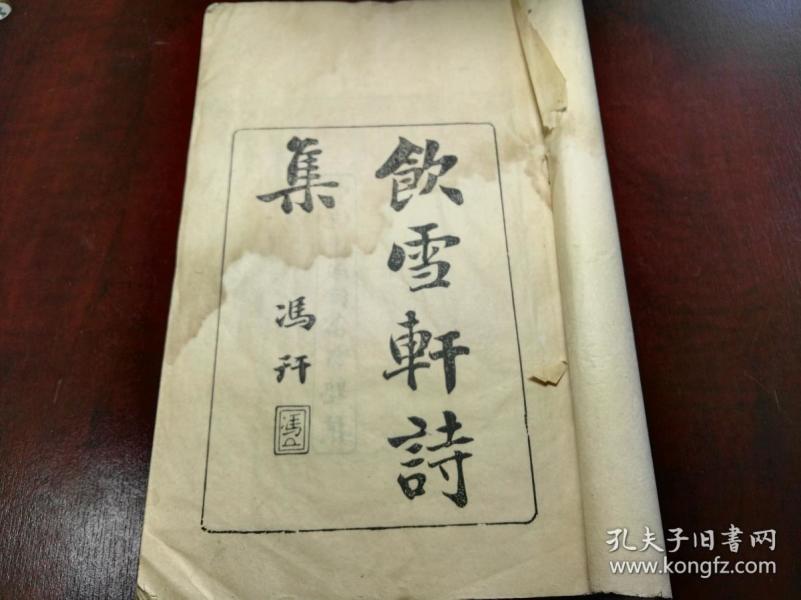 飲雪軒詩
集
馮幵
馮
孔夫子旧书网
www.kongfz.com